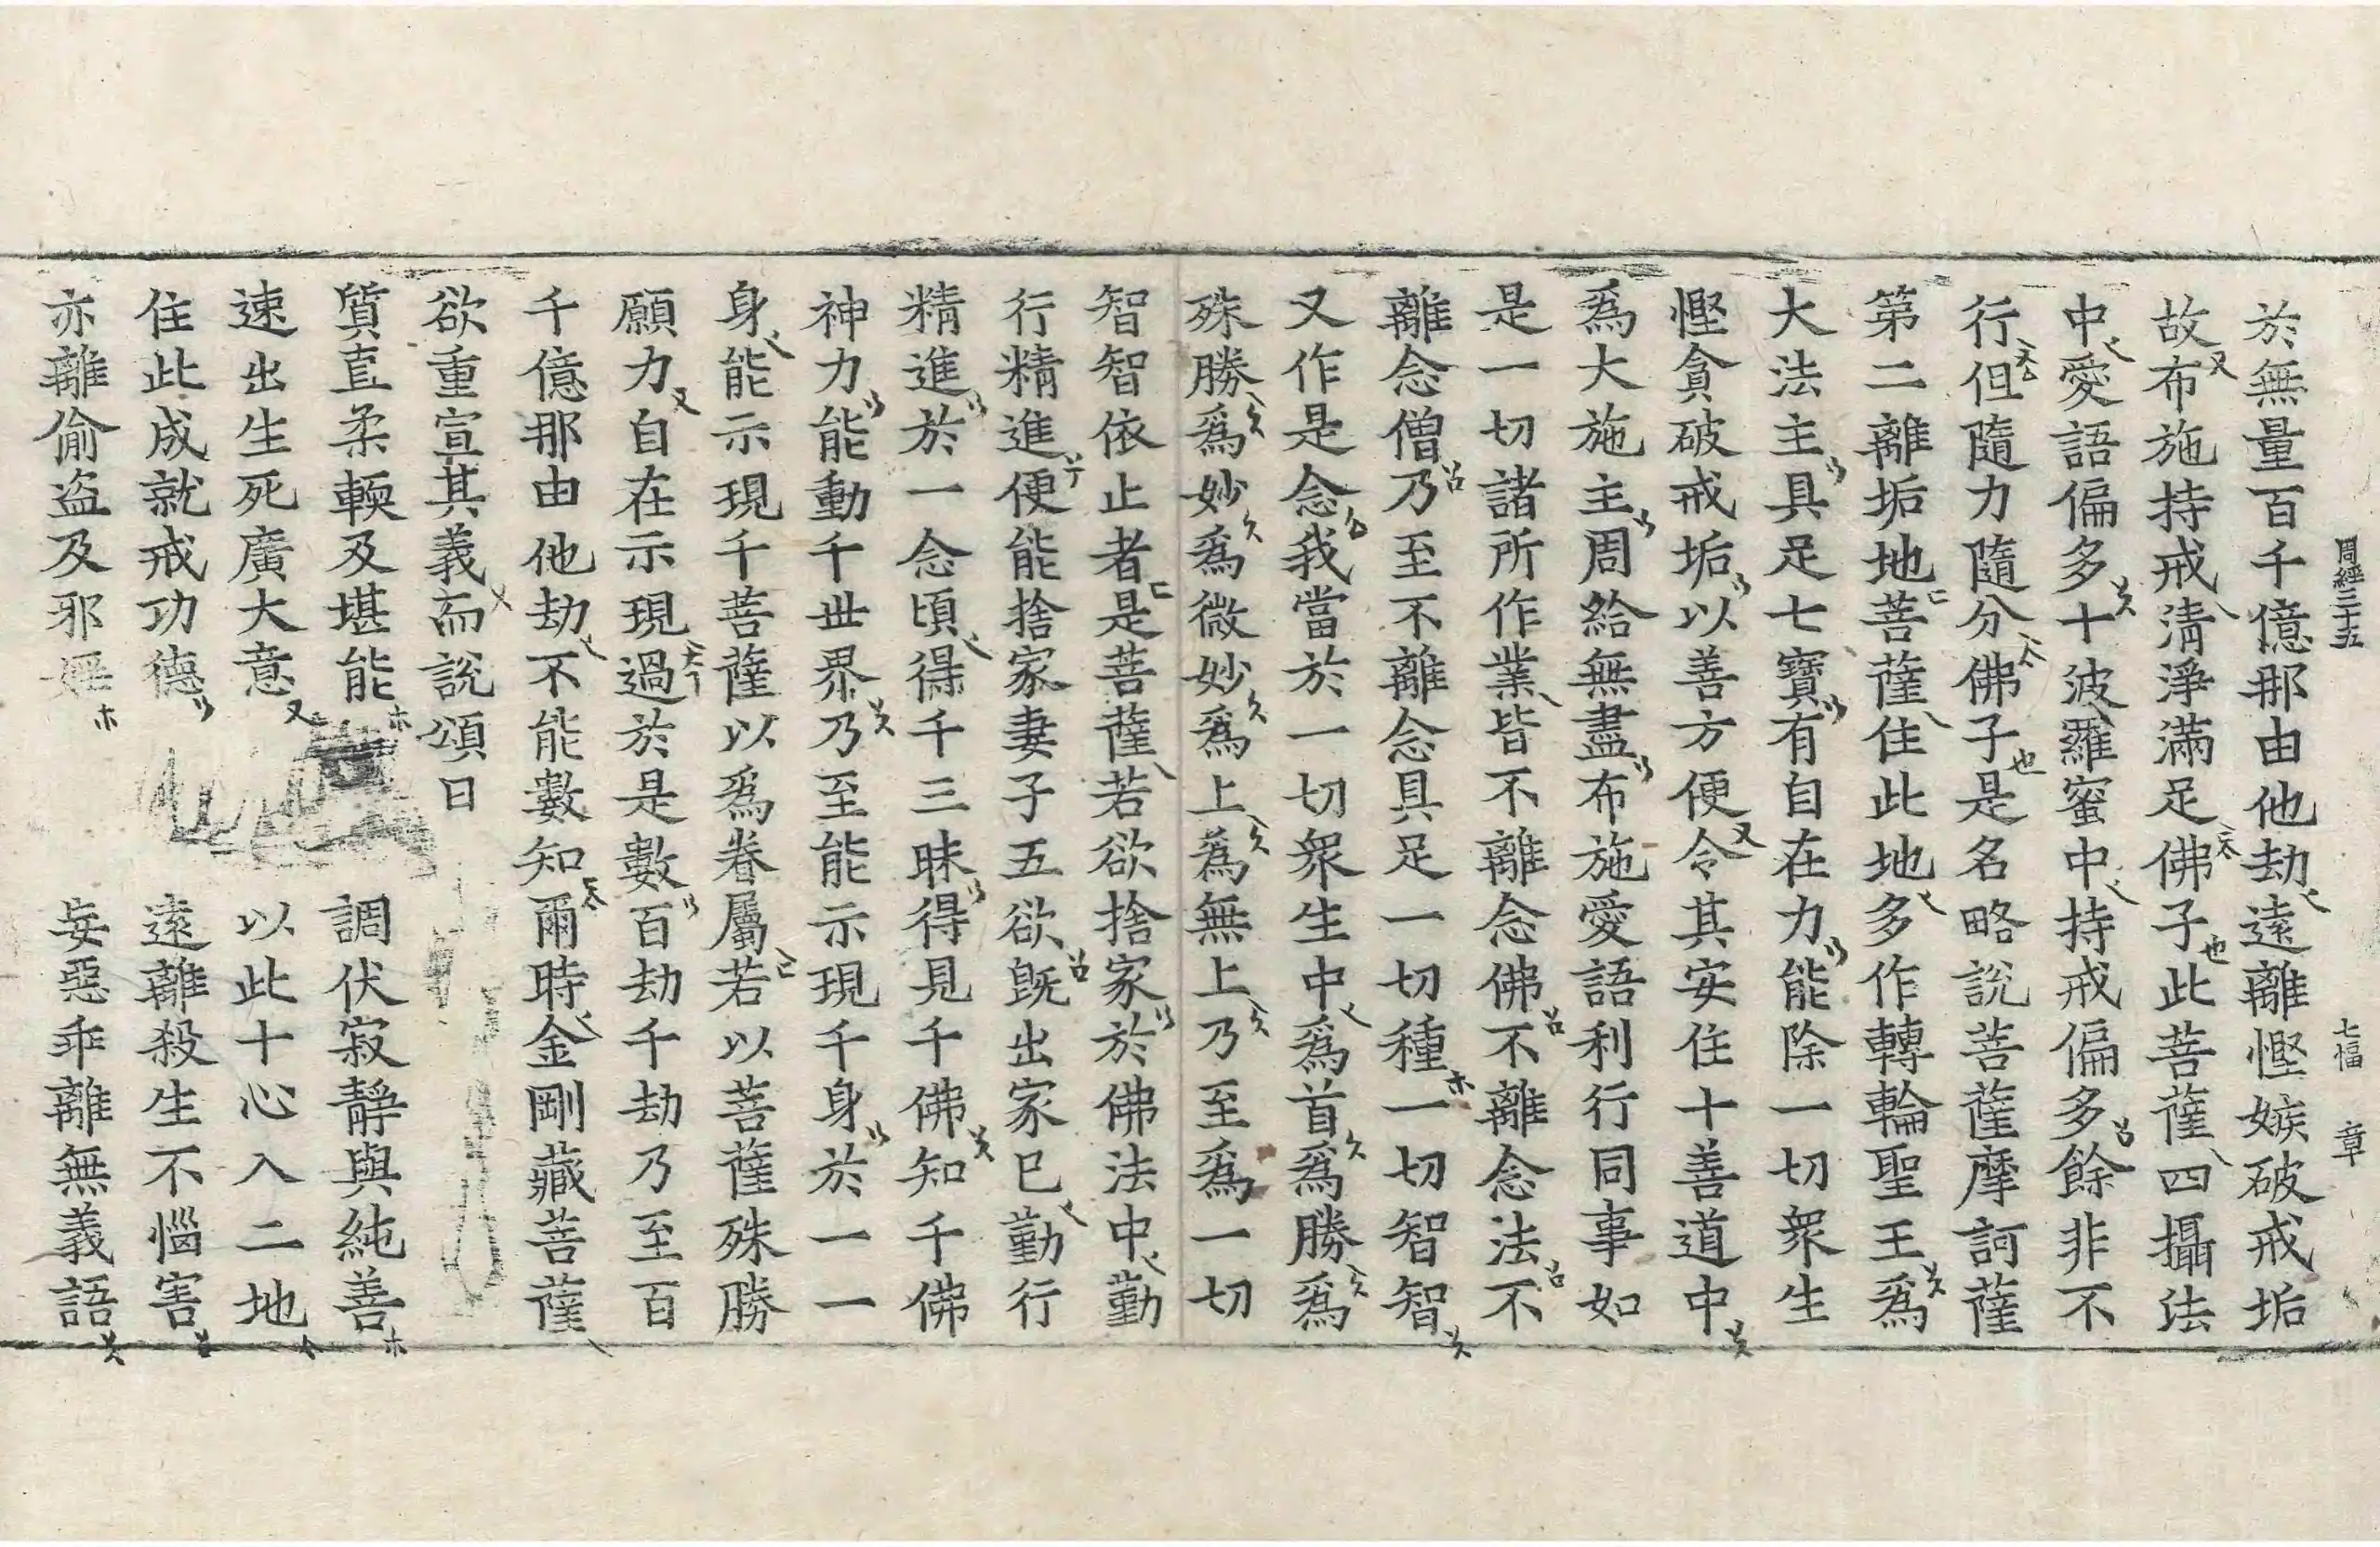 周經三十五 七幅 章
於無量百千億那由他劫遠離慳嫉破戒垢
故布施持戒清淨滿足佛子此菩薩四攝法
中愛語偏多十波羅蜜中持戒偏多餘非不
行但隨力隨分佛子是名略說菩薩摩訶薩
第二離垢地菩薩住此地多作轉輪聖王爲
大法主具足七寶有自在力能除一切衆生
慳貪破戒垢以善方便令其安住十善道中
爲大施主周給無盡布施愛語利行同事如
是一切諸所作業皆不離念佛不離念法不
離念僧乃至不離念具足一切種一切智智
又作是念我當於一切衆生中爲首爲勝爲
殊勝爲妙爲微妙爲上爲無上乃至爲一切
智智依止者是菩薩若欲捨家於佛法中勤
行精進便能捨家妻子五欲旣出家已勤行
精進於一念頃得千三昧得見千佛知千佛
神力能動千世界乃至能示現千身於一一
身能示現千菩薩以爲眷屬若以菩薩殊勝
願力自在示現過於是數百劫千劫乃至百
千億那由他劫不能數知爾時金剛藏菩薩
欲重宣其義而說頌曰
質直柔輭及堪能 調伏寂靜與純善
速出生死廣大意 以此十心入二地
住此成就戒功德 遠離殺生不惱害
亦離偷盜及邪婬 妄惡乖離無義語